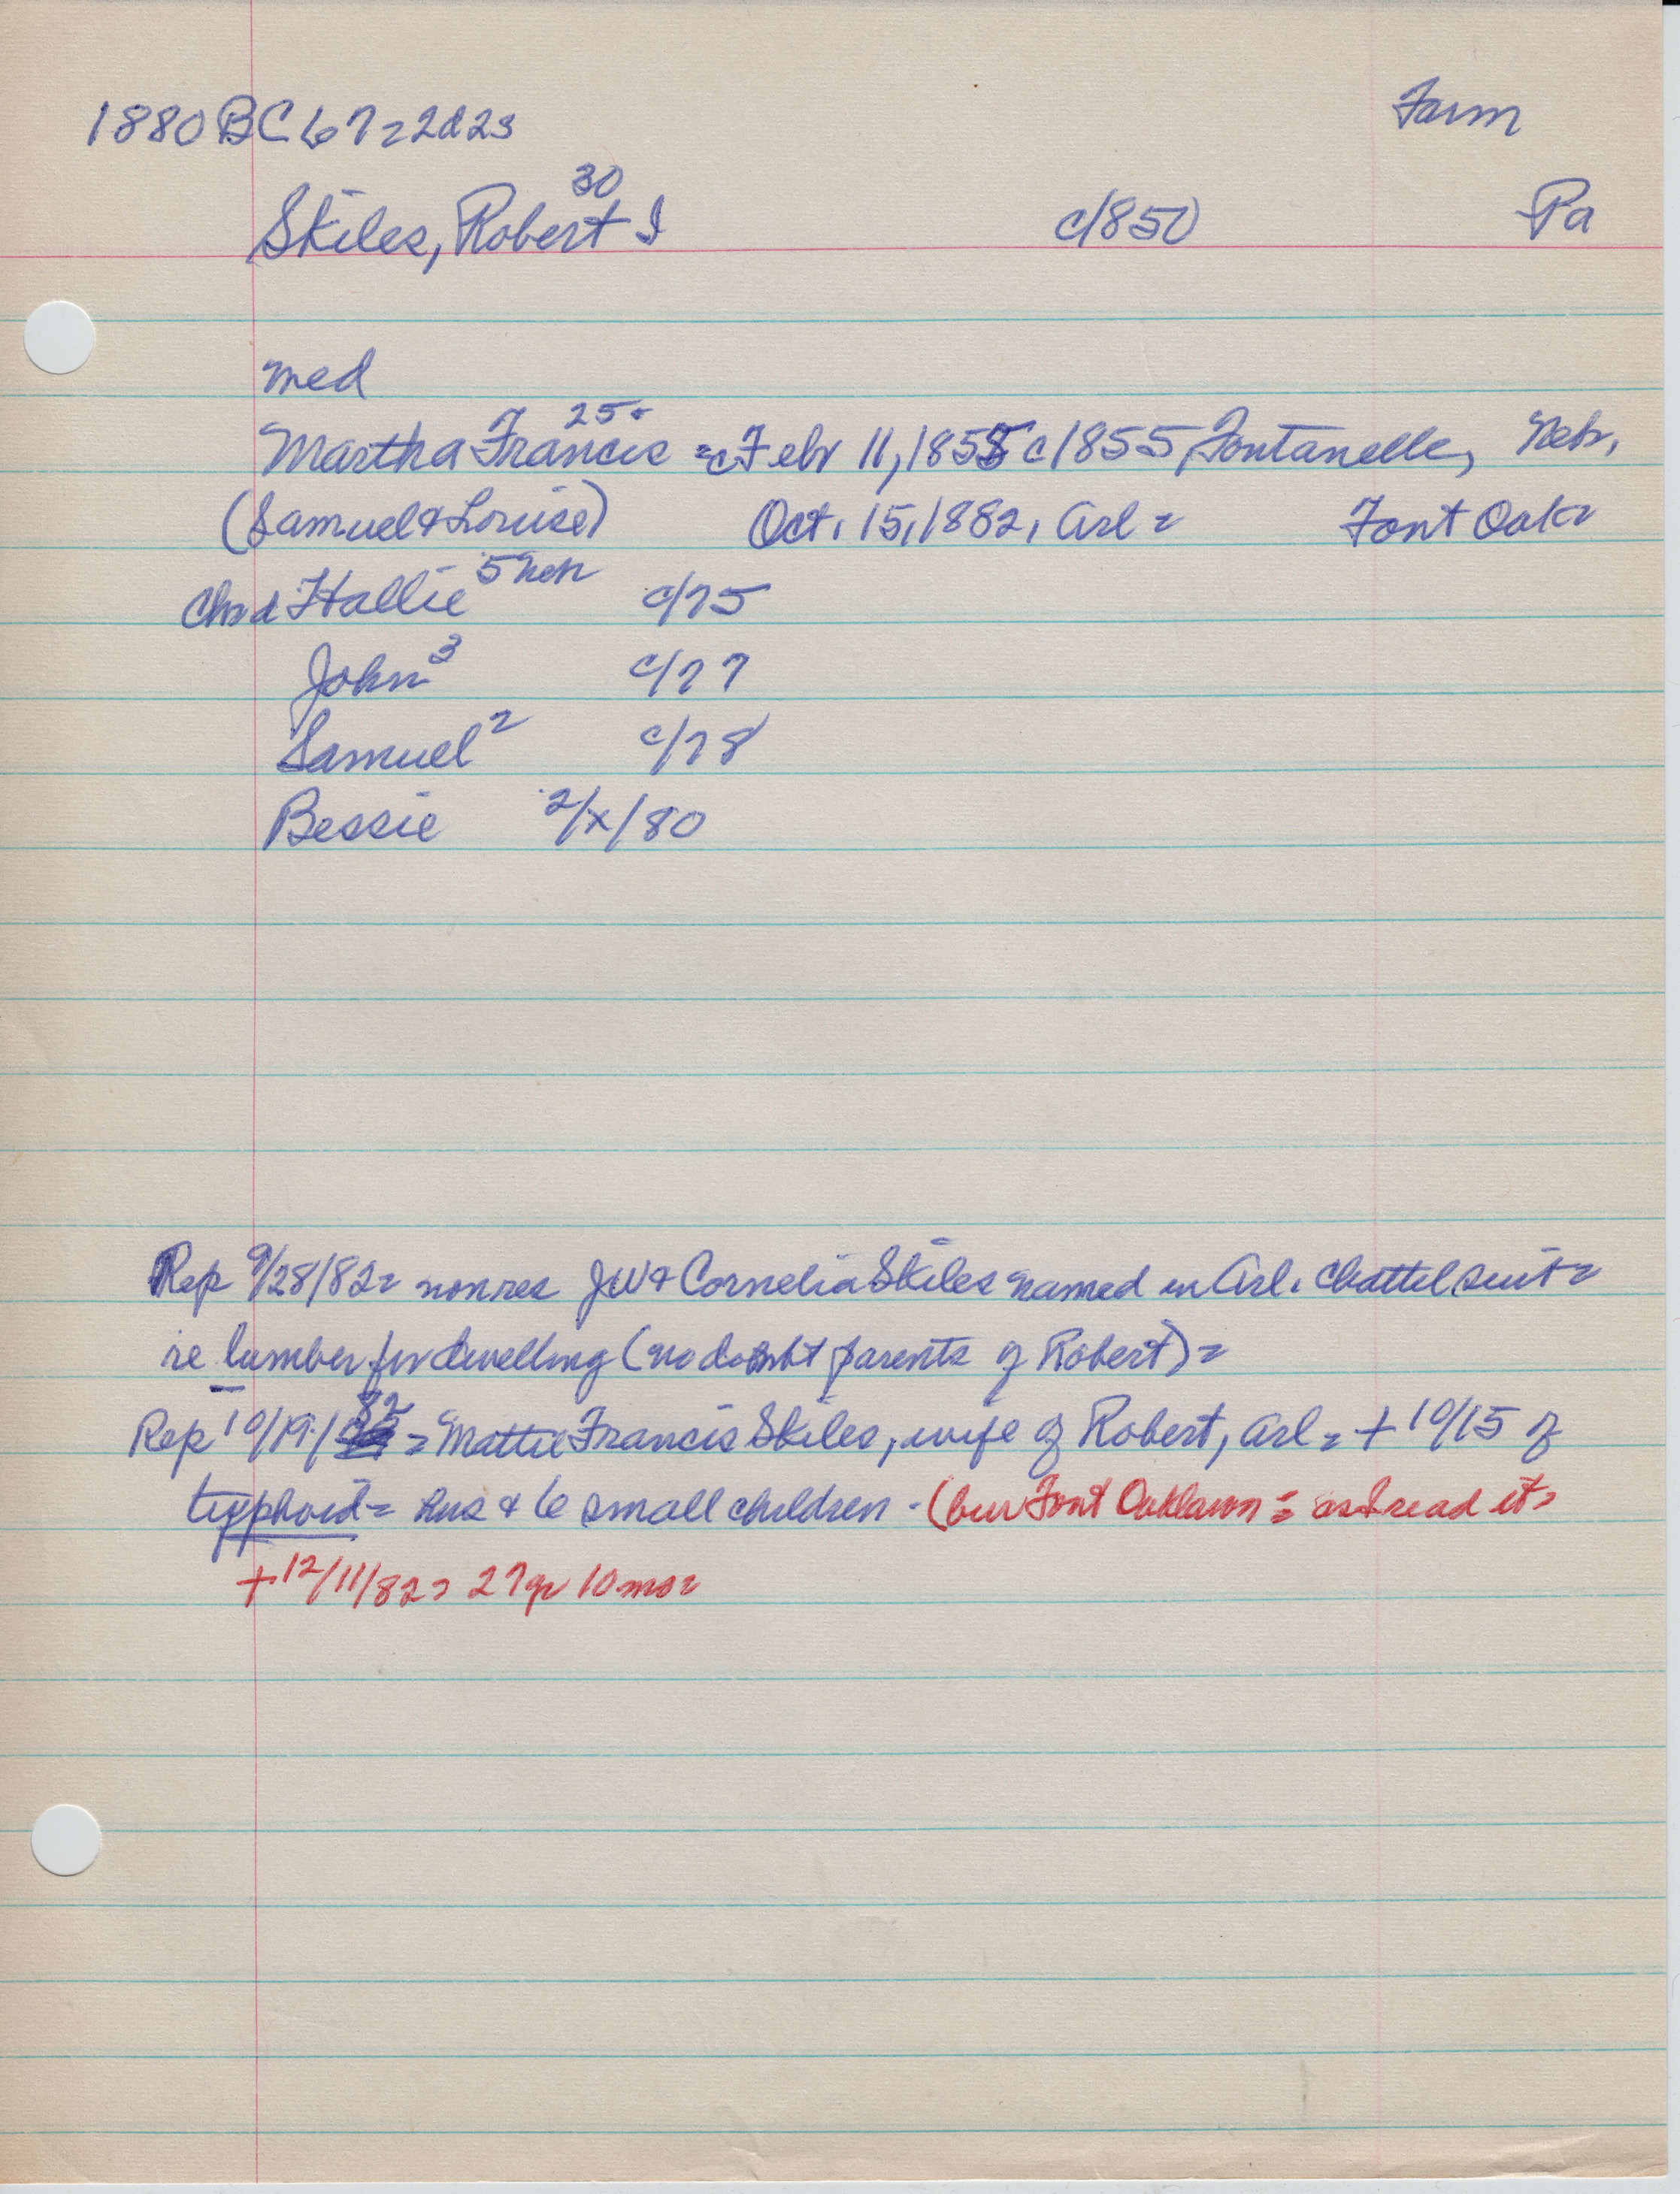 1880 BC 67 = 2d23 Farm
Skiles, Robert I 30 c/850 Pa
med
Martha Francis 25 = c Febr 11, 1855 c1855 Fontanelle, Nebr,
(Samuel & Louise) Oct. 15, 1882, Arl = Font Oak =
Chrd Hallie 5 Neb c/75
John 3 c/77
Samuel 2 c/78
Bessie 2/x/80
Rep 9/28/82 = nonres JW & Cornelia Skiles named in Arl. chattel suit =
re lumber for dwelling (no doubt parents of Robert) =
Rep 10/19/82 = Mattie Francis Skiles, wife of Robert, Arl = + 10/15 of
typhoid = hus & 6 small children - (bur Font Oaklawn = as I read it =
+ 12/11/82 = 27 yr 10 mo =